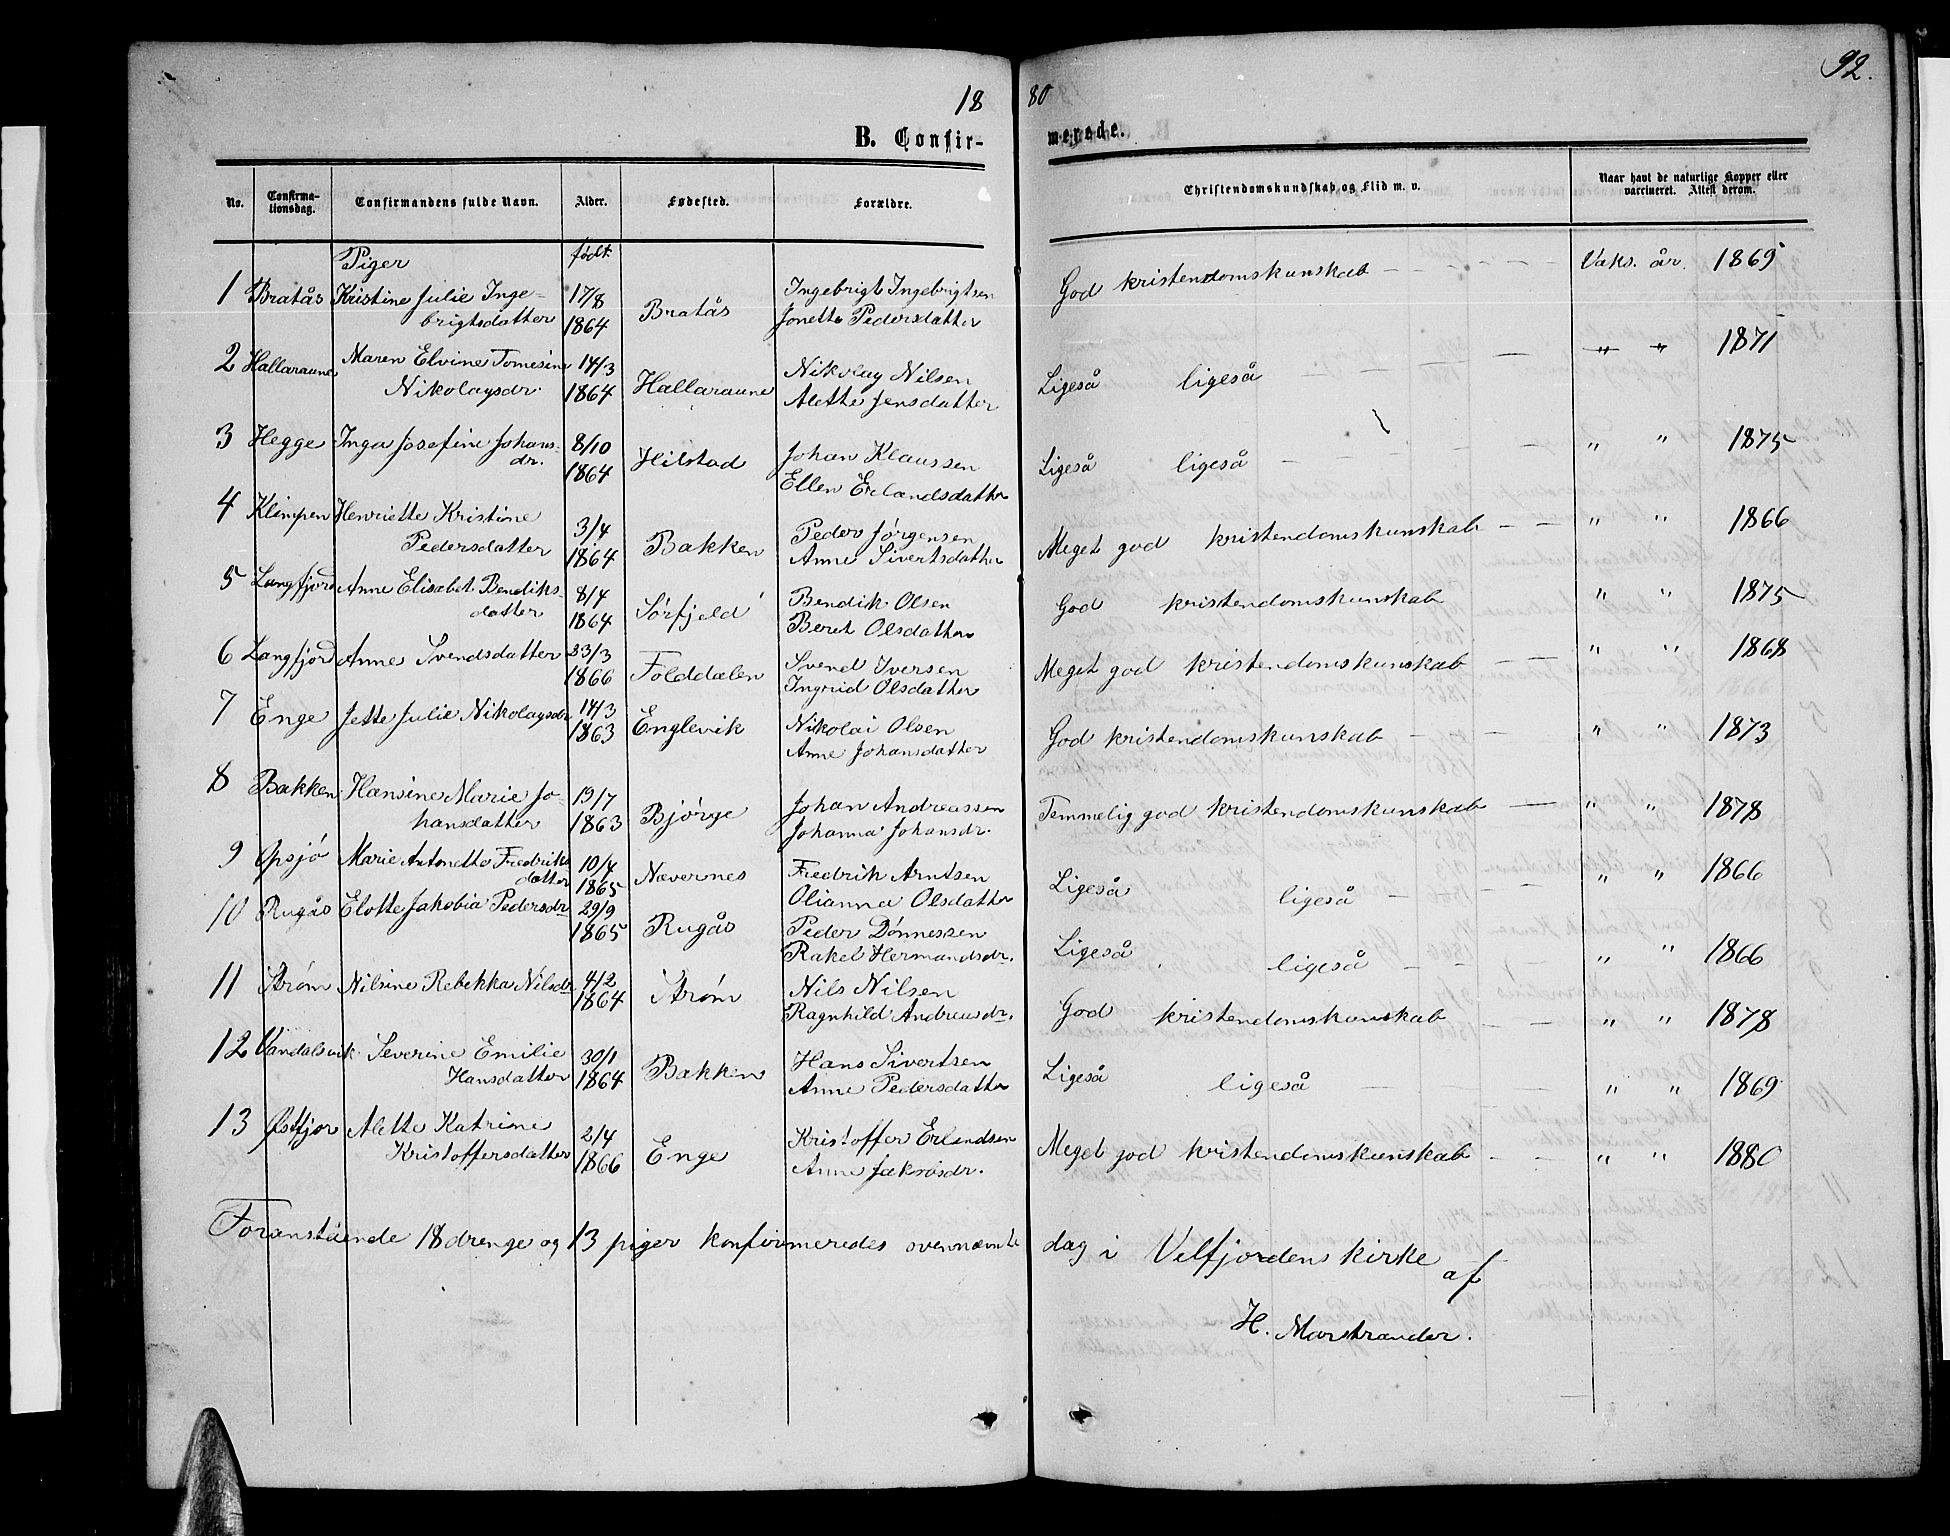 92.
18 80
B. Confirmerede.
No. Confirmationsdag. Confirmandens fulde Navn. Alder. Fødested. Forældre. Christendomskundskab og Flid m. v. Naar havt de naturlige Kopper eller vaccineret. Attest derom.
Piger født
1 Bratås Kristine Julie Inge- 17/8 Bratås Ingebrigt Ingebrigtsen God kristendomskunskab — — — Vaks. år. 1869
brigtsdatter 1864 Jonette Pedersdatter
2 Hallaraune Maren Elvine Tomesine 14/3 Hallaraune Nikolay Nilsen Ligeså ligeså — — — " " 1871
Nikolaysdr. 1864 Alette Jensdatter
3 Hegge Inga Josefine Johans- 8/10 Hilstad Johan Klaussen Ligeså ligeså — — — " " 1875
dr. 1864 Ellen Erlandsdatter
4 Klimpen Henriette Kristine 3/4 Bakken Peder Jørgensen Meget god kristendomskunskab — — " " 1866
Pedersdatter 1864 Anne Sivertsdatter
5 Langfjord Anne Elisabet Bendiks- 8/4 Sørfjeld Bendik Olsen God kristendomskunskab " " 1875
datter 1864 Beret Olsdatter
6 Langfjord Anne Svendsdatter 23/3 Folddalen Svend Iversen Meget god kristendomskunskab — — " " 1868
1866 Ingrid Olsdatter
7 Enge Jette Julie Nikolaysdr 14/3 Englevik Nikolai Olsen God kristendomskunskab — — " " 1873
1863 Anne Johansdatter
8 Bakken Hansine Marie Jo- 19/7 Bjørge Johan Andreassen Temmelig god kristendomskunskab — " " 1878
hansdatter 1863 Johanna Johansdr.
9 Opsjø Marie Antonette Fredriks 10/4 Nævernes Fredrik Arntsen Ligeså ligeså — — " " 1866
datter 1865 Olianna Olsdatter
10 Rugås Elotte Jakobia Pedersdr 29/9 Rugås Peder Dønnessen Ligeså ligeså — — " " 1866
1865 Rakel Hermandsdr.
11 Strøm Nilsine Rebekka Nilsdr 4/2 Strøm Nils Nilsen God kristendomskunskab — — " " 1878
1864 Ragnhild Andreasdr.
12 Vandalsvik Severine Emilie 30/1 Bakken Hans Sivertsen Ligeså ligeså — — " " 1869
Hansdatter 1864 Anne Pedersdatter
13 Østfjor Alette Katrine 2/4 Enge Kristoffer Erlandsen Meget god kristendomskunskab — — " " 1880
Kristoffersdatter 1866 Anne
Foranstående 18 drenge og 13 piger konfirmeredes ovennævnte dag i Velfjordens kirke af
H. Marstrander.